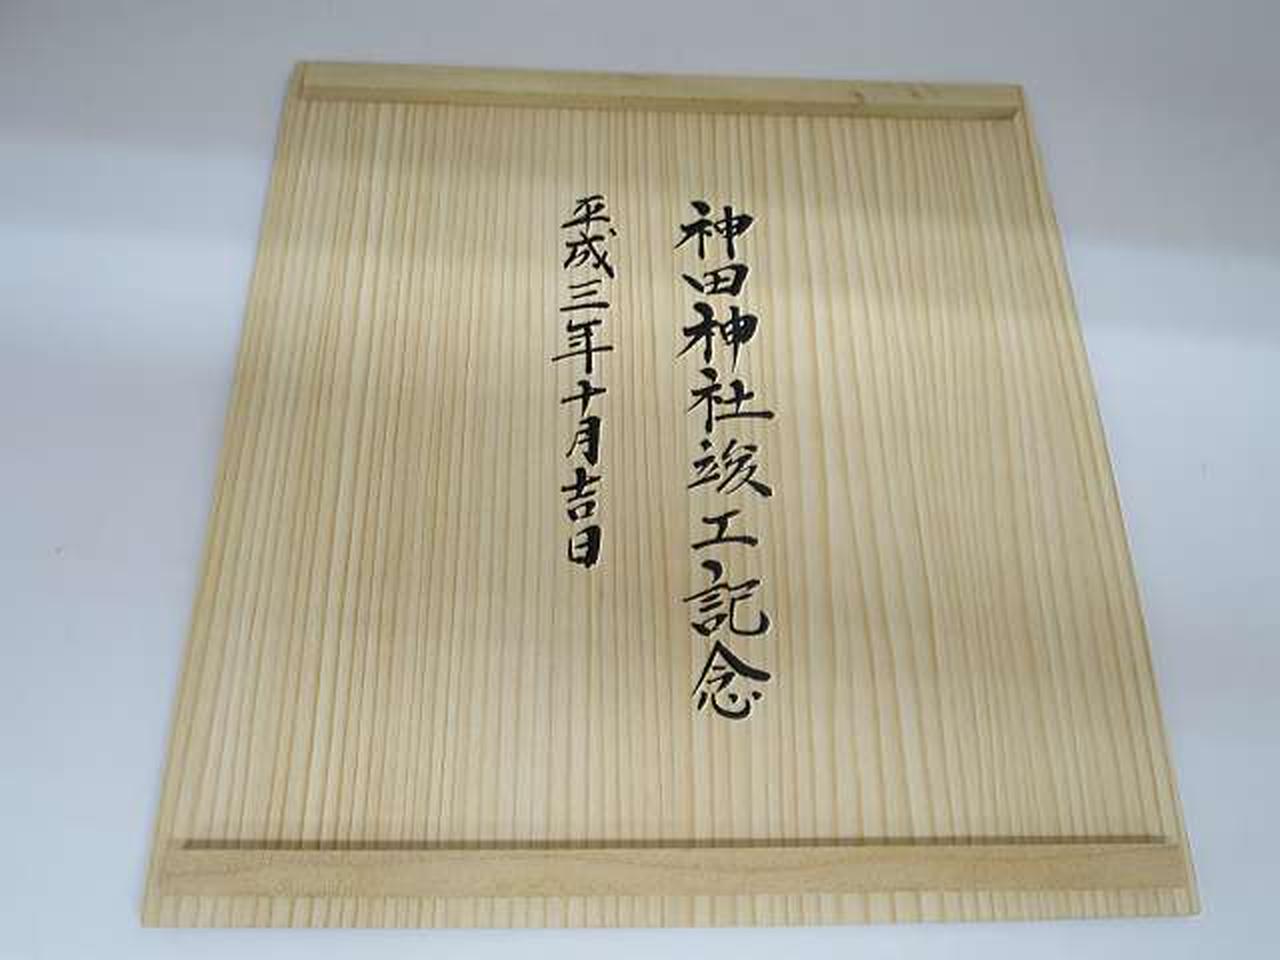 神田神社竣工記念
平成三年十月吉日